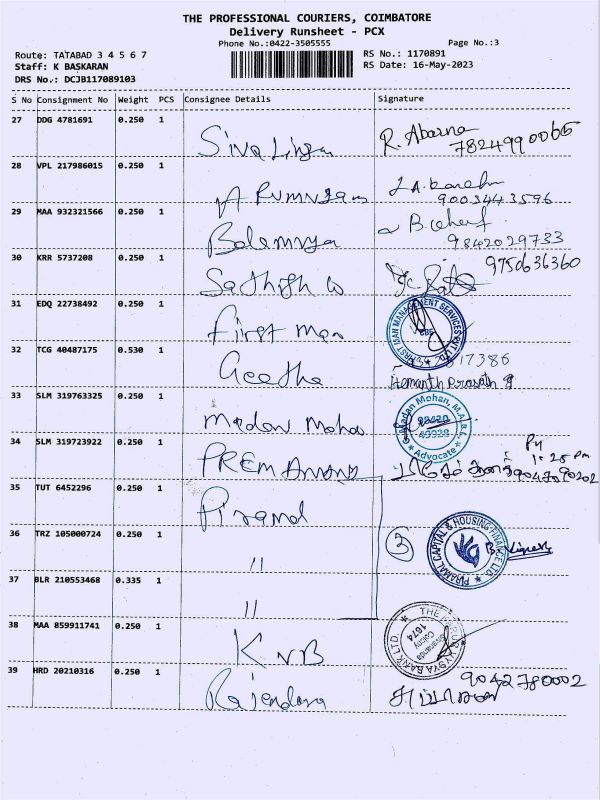 THE PROFESSIONAL COURIERS, COIMBATORE
Delivery Runsheet - PCX
Phone No.:0422-3505555
Page No.:3
Route: TATABAD 3 4 5 6 7
RS No.: 1170891
Staff: K BASKARAN
RS Date: 16-May-2023
DRS No.: DCJB117089103
S No Consignment No Weight PCS Consignee Details Signature
27 DDG 4781691 0.250 1
Sivalingam R. Abarna
7824990065
28 VPL 217986015 0.250 1
Arumugam
9003443596
29 MAA 932321566 0.250 1
9842029733
30 KRR 5737208 0.250 1
Sathish 9750636360
31 EDQ 22738492 0.250 1
First Man
FIRST MAN MANAGEMENT SERVICES PVT LTD.
CBE
32 TCG 40487175 0.530 1
Geetha 17386
Hemanth Prasath
33 SLM 319763325 0.250 1
Madan Mohan
Madan Mohan, M.A.B.L.
Advocate
34 SLM 319723922 0.250 1
PREM ANAND
1:25 Pm
35 TUT 6452296 0.250 1
Piramal
36 TRZ 105000724 0.250 1
"
3
PIRAMAL CAPITAL & HOUSING FINANCE LTD.
37 BLR 210553468 0.335 1
"
38 MAA 859911741 0.250 1
KVB
THE KARUR VYSYA BANK LTD.
Sivananda
Colony
1674
39 HRD 20210316 0.250 1
Rajendran 9042780002